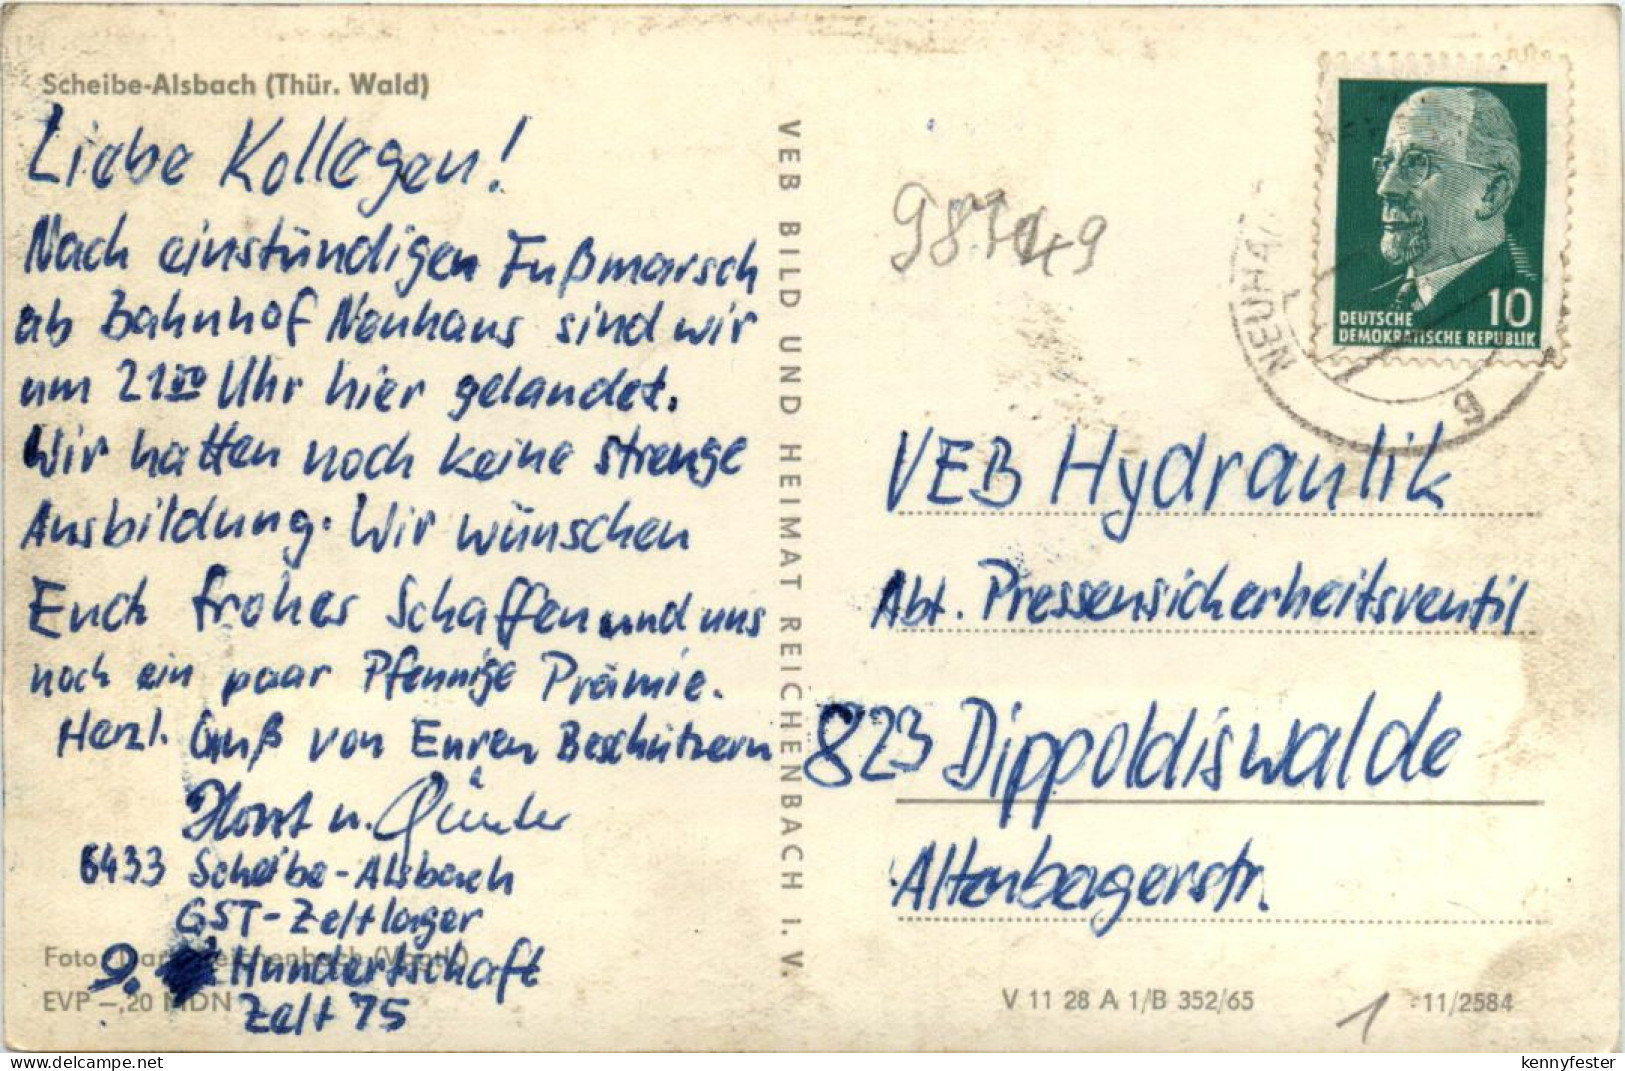 Scheibe-Alsbach (Thür. Wald)
Liebe Kollegen!
Nach einstündigen Fußmarsch
ab Bahnhof Neuhaus sind wir
um 21⁰⁰ Uhr hier gelandet.
Wir hatten noch keine strenge
Ausbildung. Wir wünschen
Euch frohes Schaffen und uns
noch ein paar Pfennige Prämie.
Herzl. Gruß von Euren Beschützern
Horst u. Günter
6433 Scheibe-Alsbach
GST-Zeltlager
9. Hundertschaft
Zelt 75
Foto: Reichenbach (Vogtl.)
EVP –,20 MDN
VEB BILD UND HEIMAT REICHENBACH I. V.
DEUTSCHE
DEMOKRATISCHE REPUBLIK
10
NEUHA
VEB Hydraulik
Abt. Pressensicherheitsventil
823 Dippoldiswalde
Altenbergerstr.
V 11 28 A 1/B 352/65
1
11/2584
kennyfester